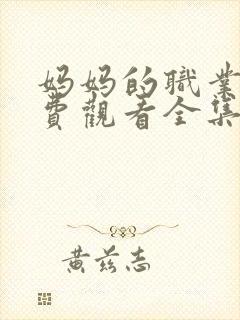 妈妈的職業
費觀看全集
黄兹志